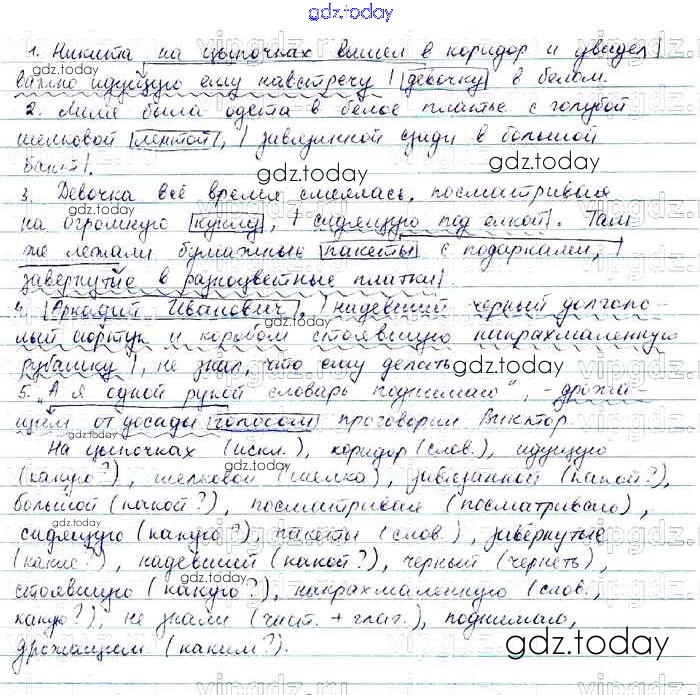 gdz.today
1. Никита на цыпочках вышел в коридор и увидел |
важно идущую ему навстречу | девочку в белом.
gdz.today
2. Лиля была одета в белое платье с голубой
шелковой лентой, | завязанной сзади в большой
бант |.
gdz.today
3. Девочка всё время смеялась, посматривая
на огромную куклу, | сидящую под ёлкой |. Там
же лежали бумажные пакеты с подарками, |
завернутые в разноцветные платки |.
4. Аркадий Иванович, | надевший черный долгопо-
лый сюртук и коробом стоявшую накрахмаленную
рубашку |, не знал, что ему делать.
gdz.today
5. „А я одной рукой словарь поднимаю", - дрожа-
щим от досады голосом проговорил Виктор.
На цыпочках (искл.), коридор (слов.), идущую
(какую?), шелковой (шелка), завязанной (какой?),
большой (какой?), посматривая (посматриваю),
сидящую (какую?), пакеты (слов.), завёрнутые
(какие?), надевший (какой?), черный (чернеть),
стоявшую (какую?), накрахмаленную (слов.,
какую?), не знали (част. + глаг.), поднимаю,
дрожащим (каким?).
gdz.today